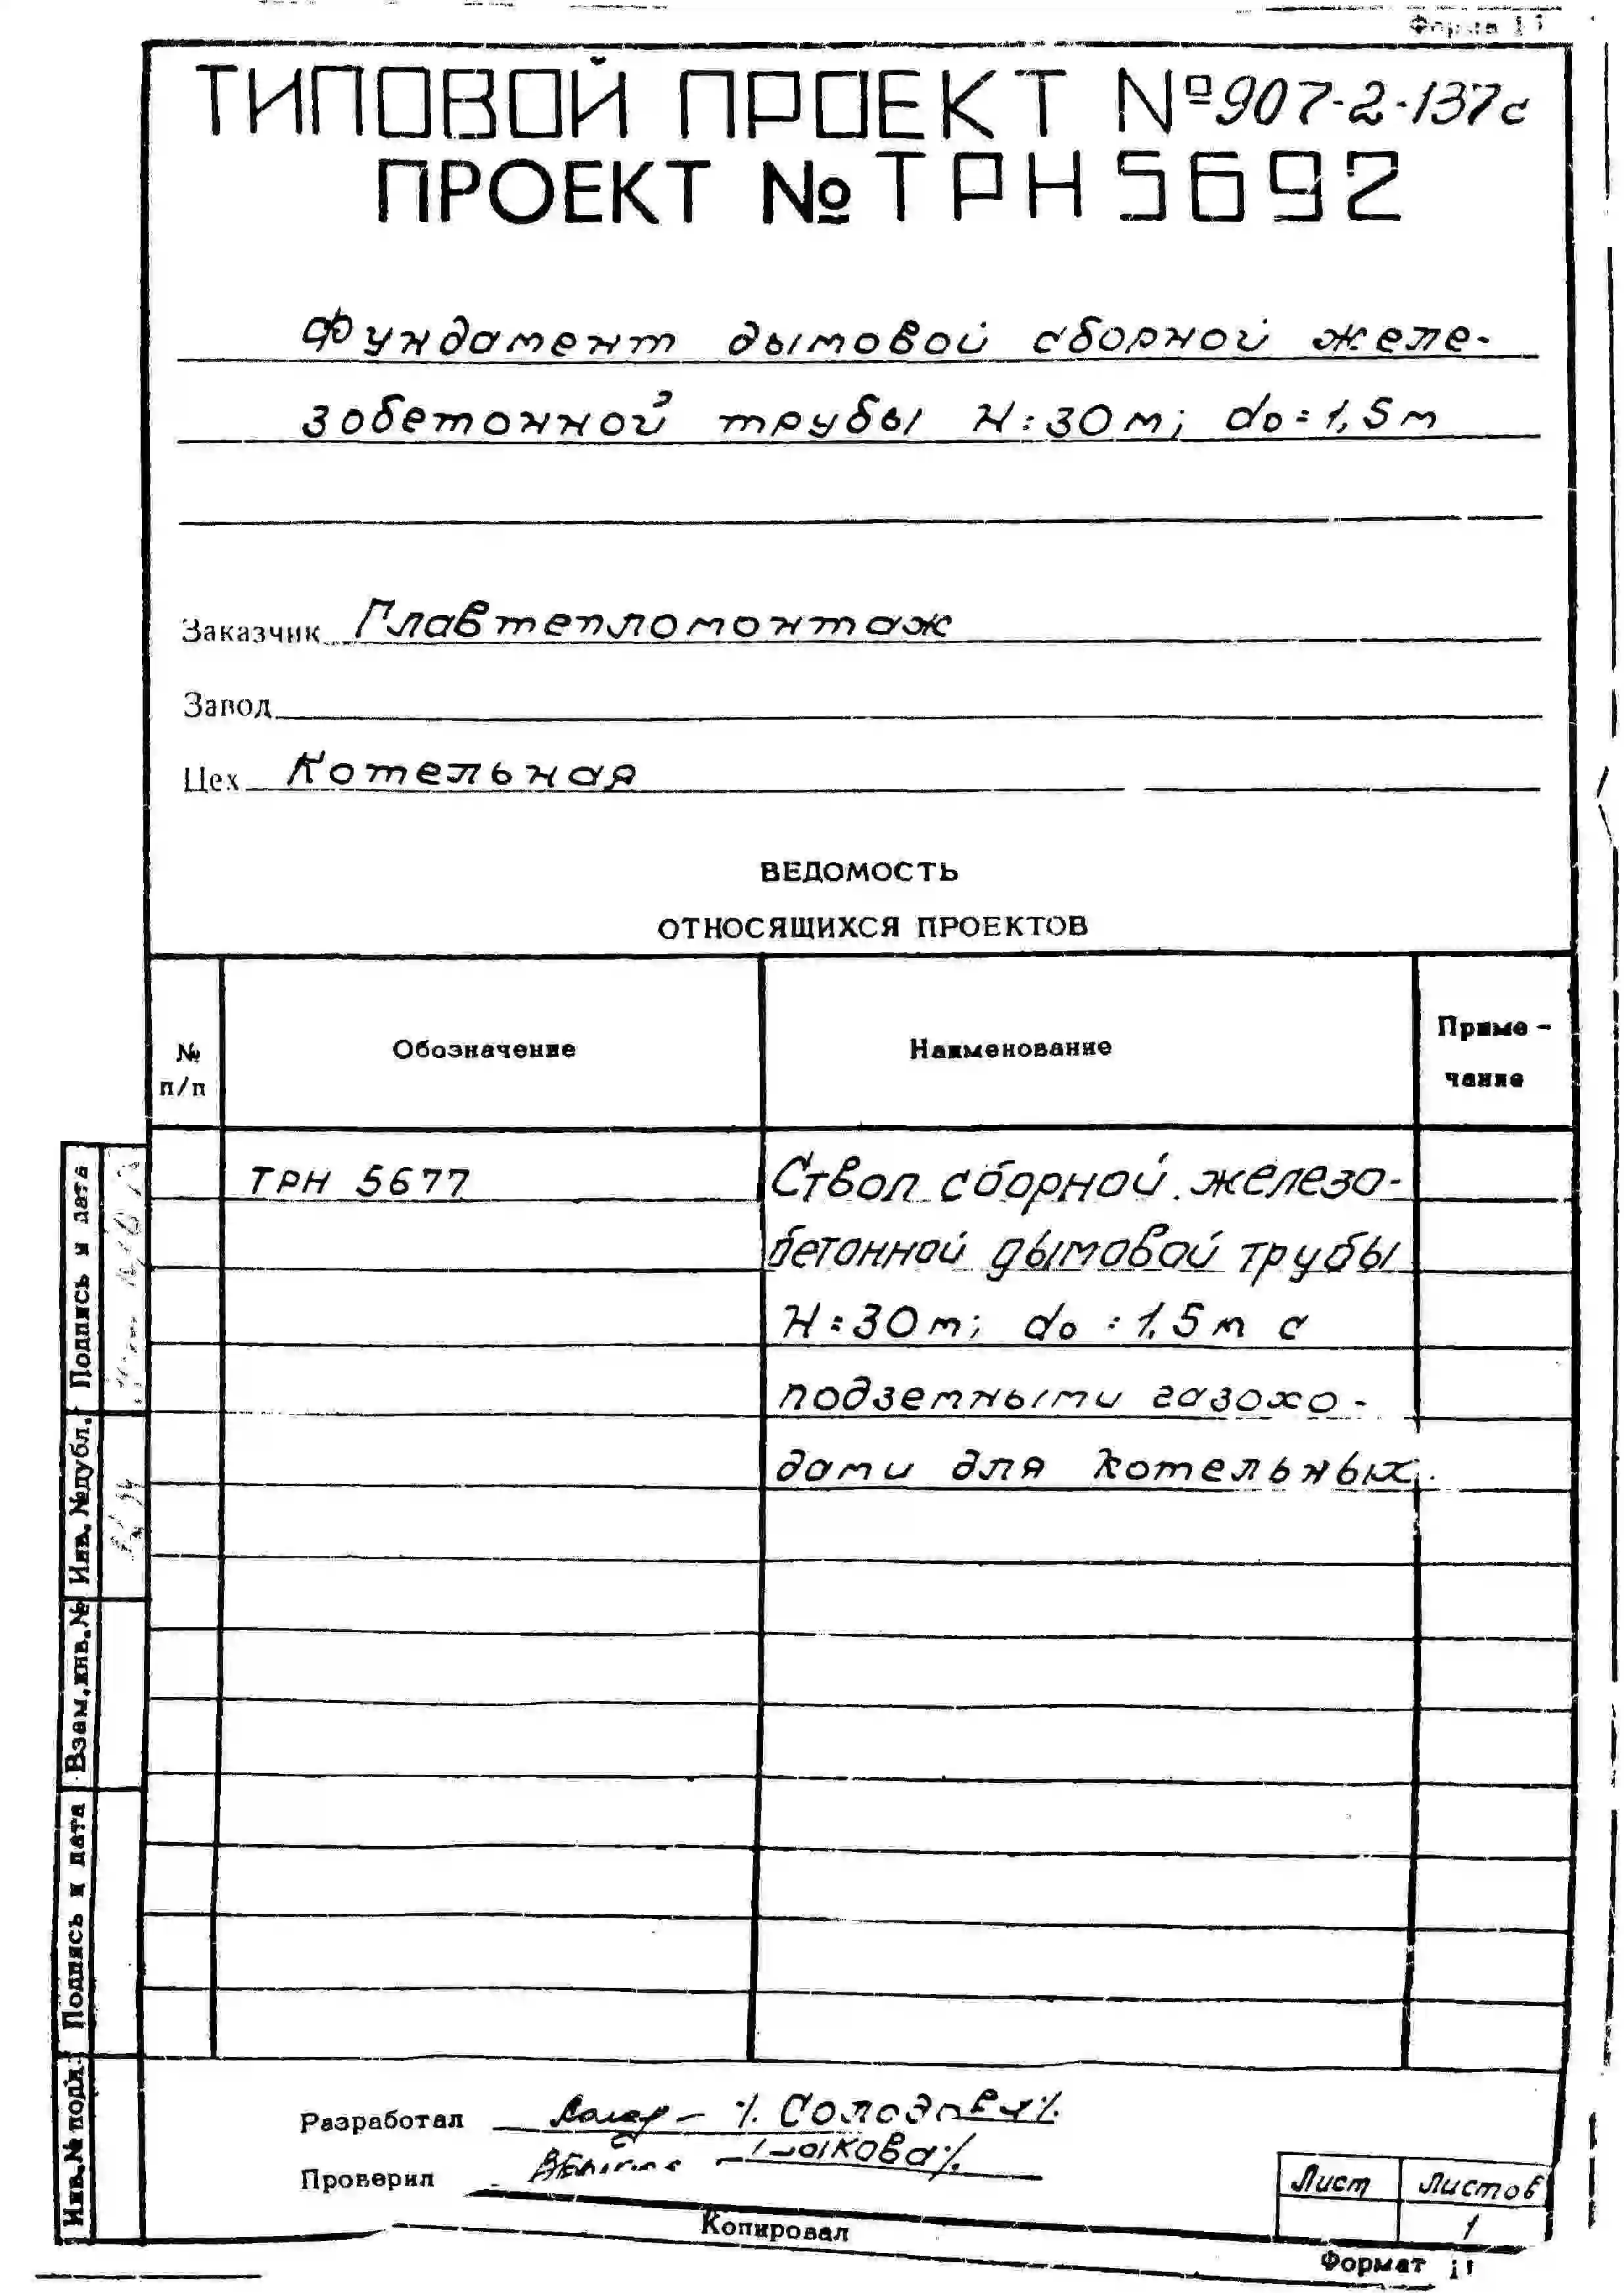 Форма 11
ТИПОВОЙ ПРОЕКТ №907-2-137с
ПРОЕКТ № ТРН5692
Фундамент дымовой сборной желе-
зобетонной трубы Н=30м; do=1,5м
Заказчик Главтепломонтаж
Завод
Цех Котельная
ВЕДОМОСТЬ
ОТНОСЯЩИХСЯ ПРОЕКТОВ
№ п/п
Обозначение
Наименование
Приме-
чание
ТРН 5677
Ствол сборной железо-
бетонной дымовой трубы
Н=30м; do=1,5м с
подземными газохо-
дами для котельных.
Подпись и дата
Инв.№дубл.
Взам.инв.№
Подпись и дата
Инв.№ подл.
Разработал
Проверил
Копировал
Лист Листов
1
Формат 11